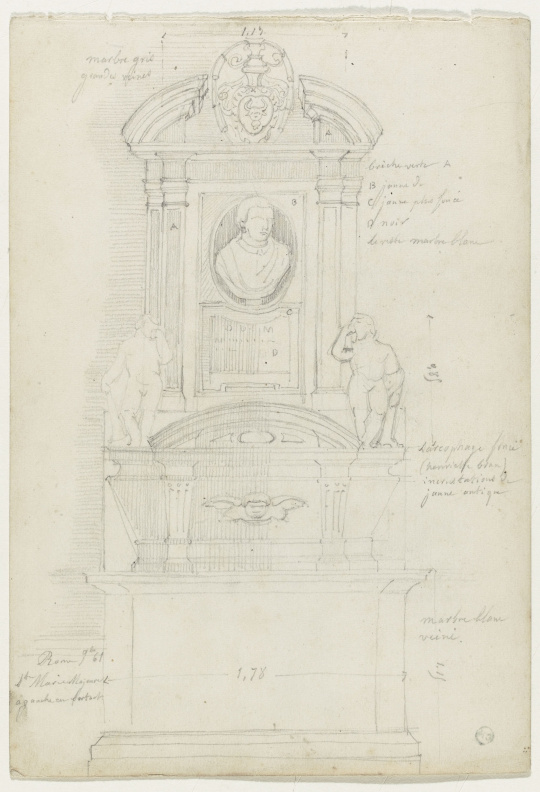 1,13
marbre gris
grandes veines
A
brèche verte A
B jaune do
C jaune plus foncé
D noir
le reste marbre blanc
B
A
C
D M
D
sarcophage foncé
incrustations de
jaune antique
marbre blanc
veiné.
Rome 9bre 61.
Ste Marie Majeure
à gauche en sortant
1,78